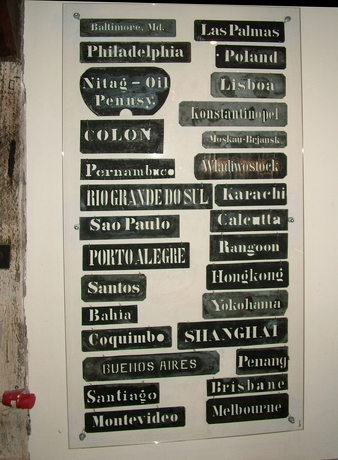 Baltimore, Md.
Philadelphia
Nitag - Oil
Pennsy.
COLON
Pernambuco
RIO GRANDE DO SUL
Sao Paulo
PORTO ALEGRE
Santos
Bahia
Coquimbo
BUENOS AIRES
Santiago
Montevideo
Las Palmas
Poland
Lisboa
Konstantinopel
Moskau-Brjansk.
Wladiwostock
Karachi
Calcutta
Rangoon
Hongkong
Yokohama
SHANGHAI
Penang
Brisbane
Melbourne